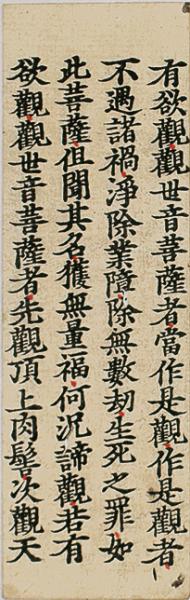 有欲觀觀世音菩薩者當作是觀作是觀者
不遇諸禍淨除業障除無數劫生死之罪如
此菩薩但聞其名獲無量福何況諦觀若有
欲觀觀世音菩薩者先觀頂上肉髻次觀天